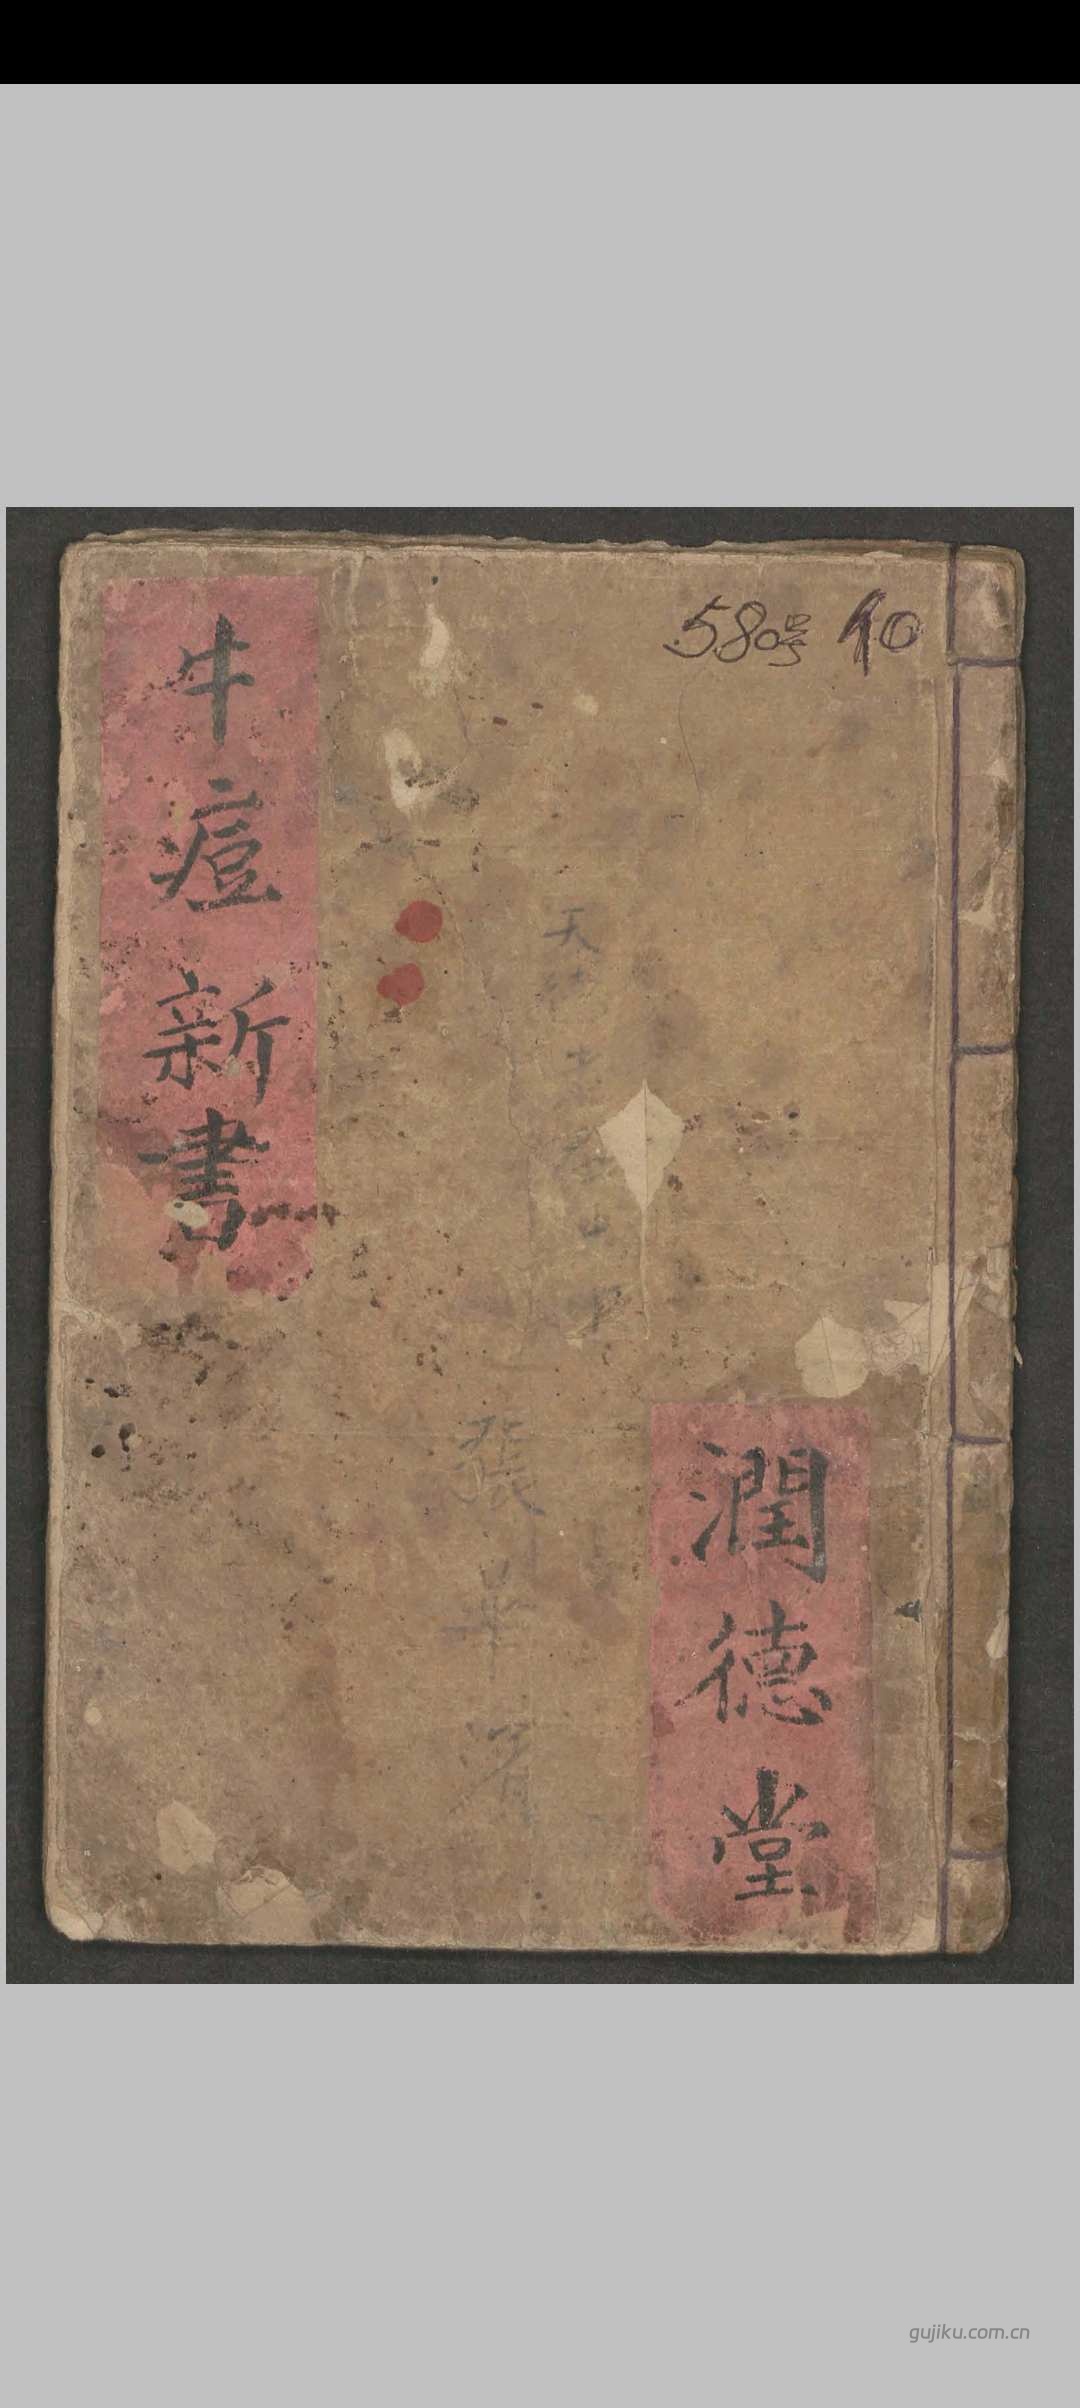 580号 10
牛痘新書
天德堂
張
潤德堂
gujiku.com.cn